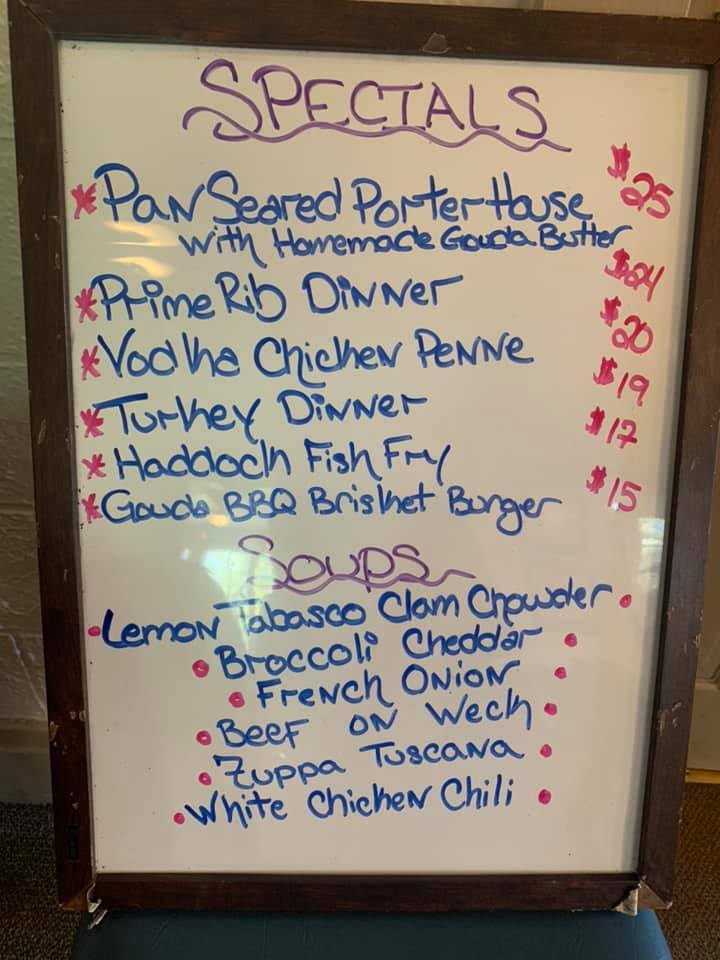 SPECIALS
* Pan Seared Porter House $25
with Homemade Gouda Butter
* Prime Rib Dinner $24
* Vodka Chicken Penne $20
* Turkey Dinner $19
* Haddock Fish Fry $17
* Gouda BBQ Brisket Burger $15
Soups
• Lemon Tabasco Clam Chowder •
• Broccoli Cheddar •
• French Onion •
• Beef on Weck •
• Zuppa Tuscana •
• White Chicken Chili •